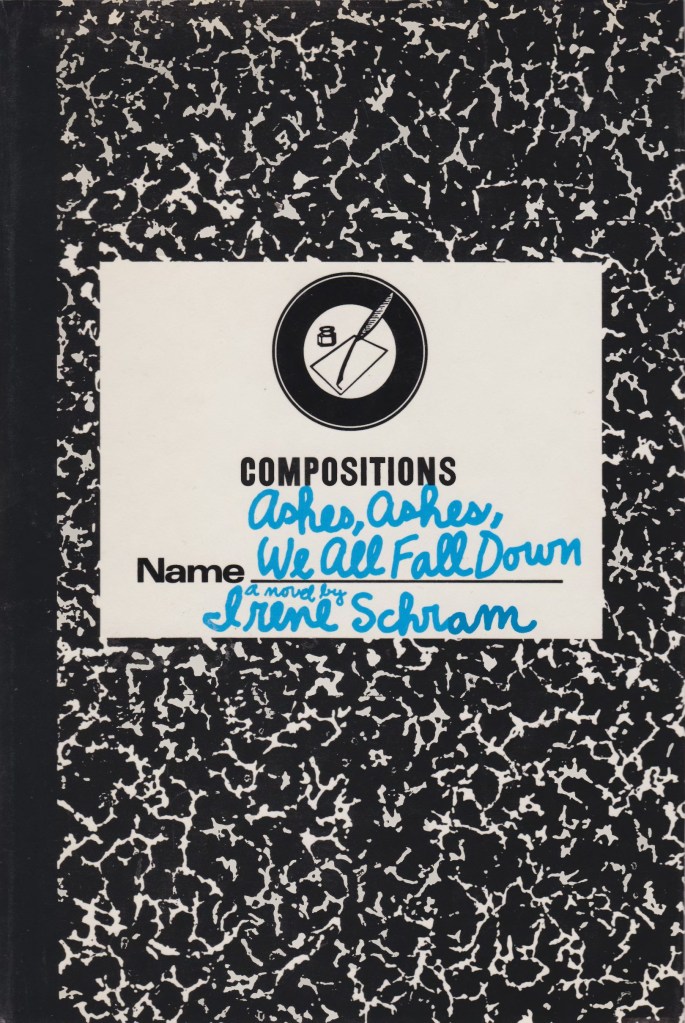 COMPOSITIONS
Ashes, Ashes,
Name We All Fall Down
a novel by
Irene Schram